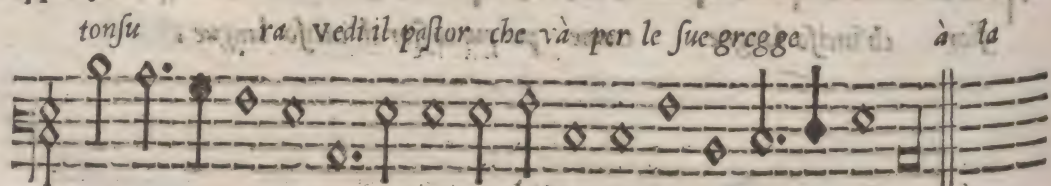 tonſu ra vedi il paſtor che và per le ſue gregge à la